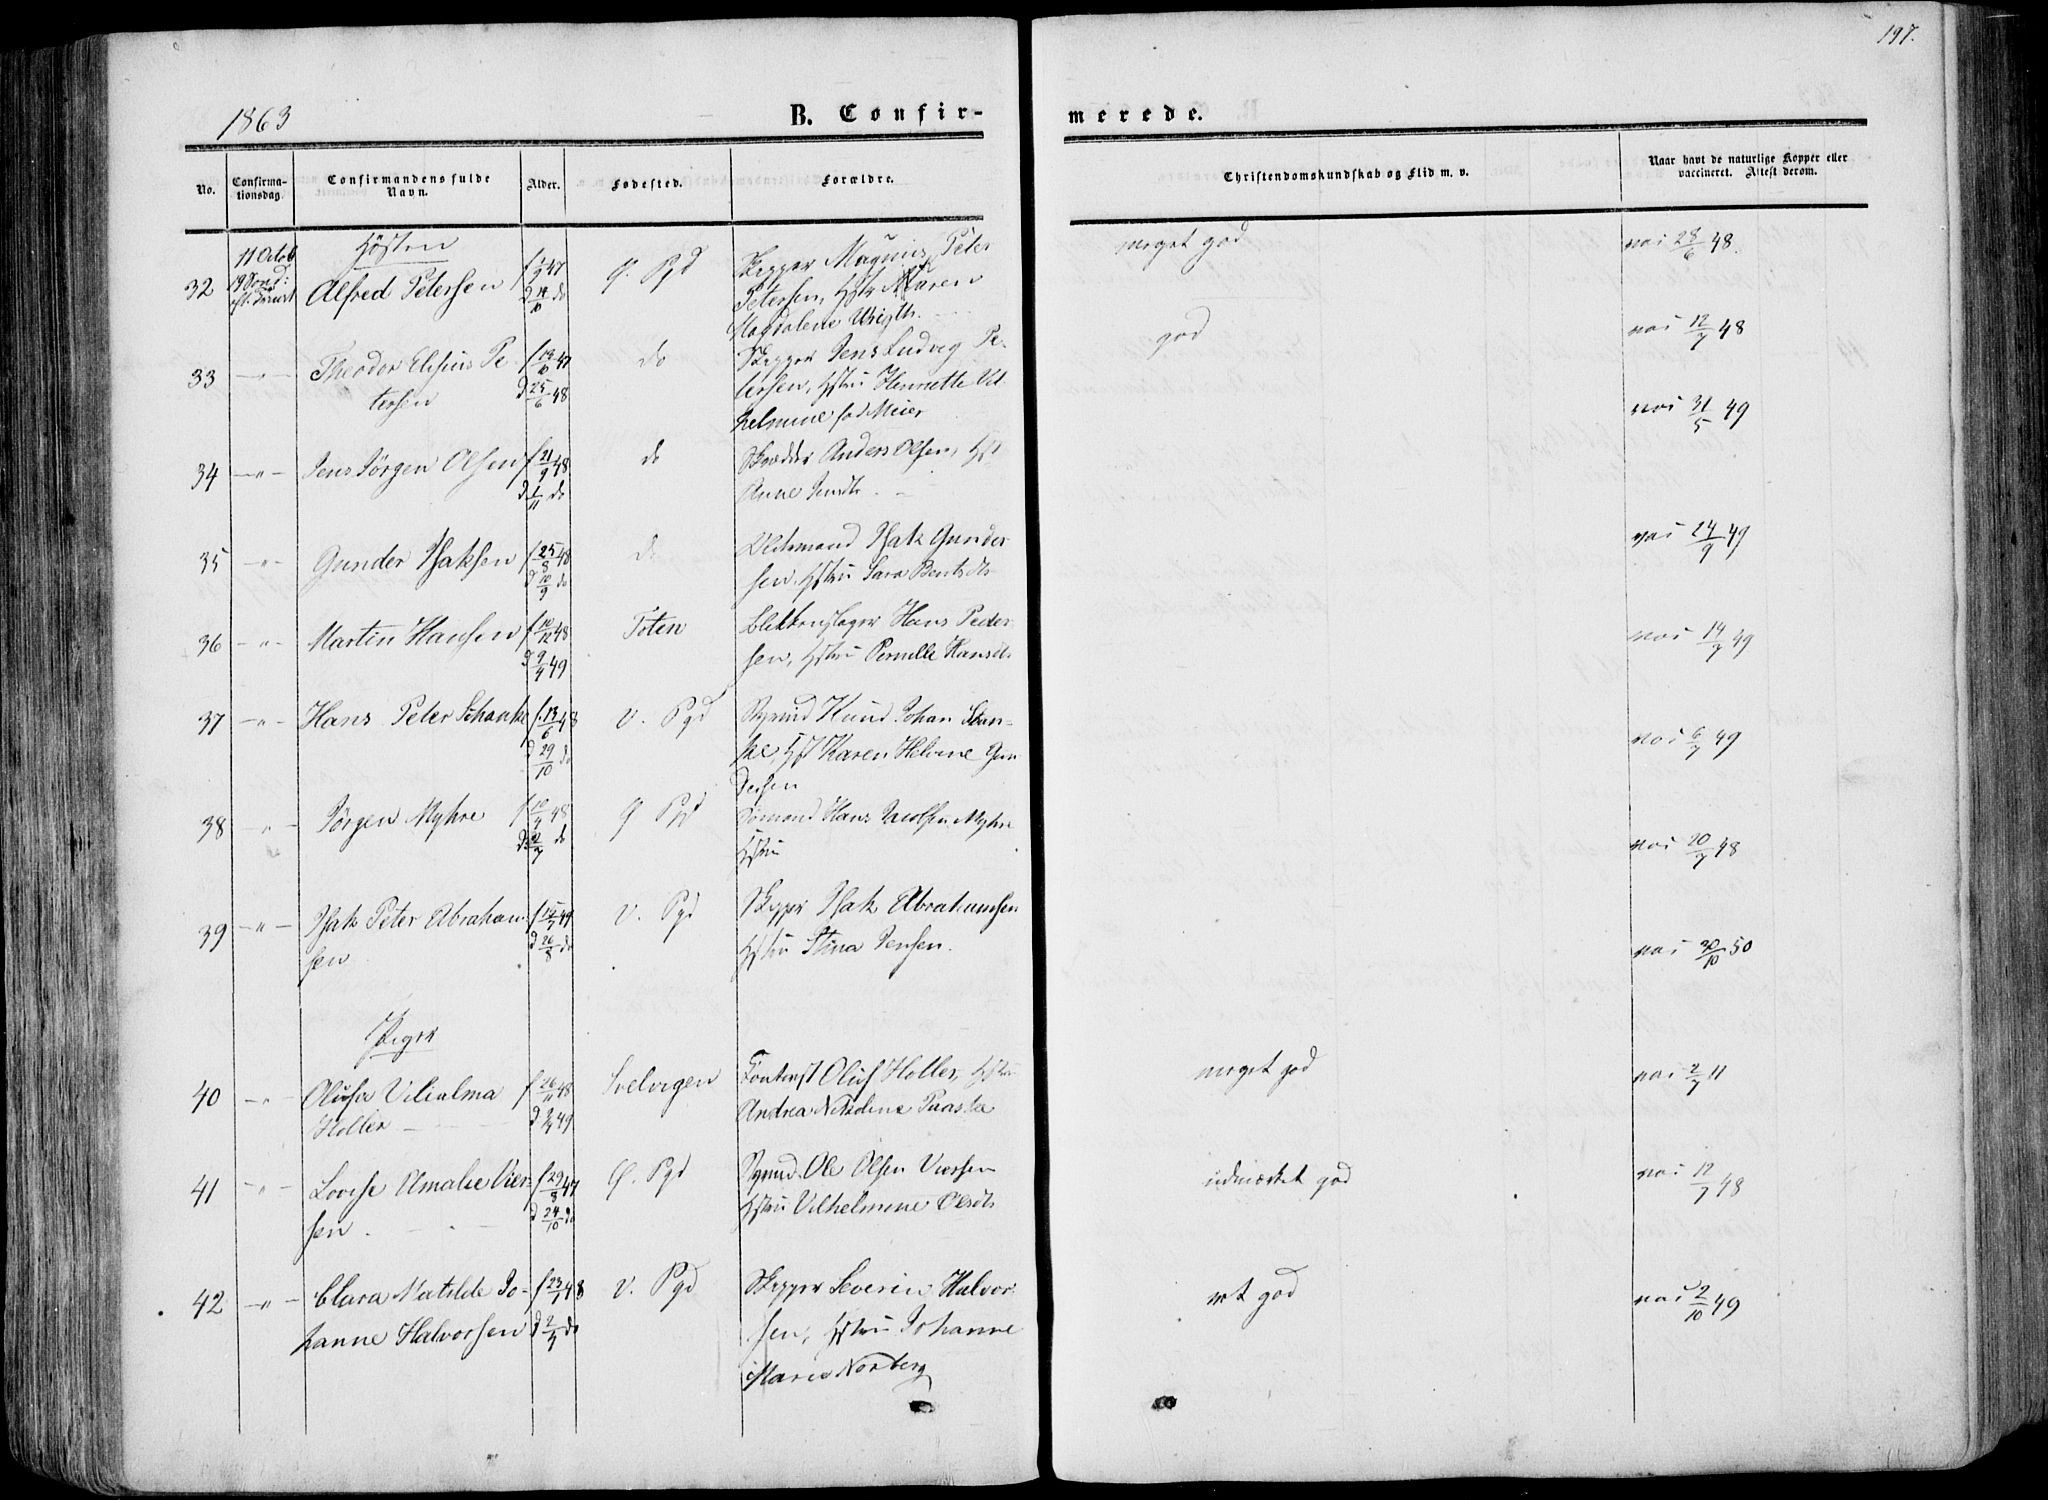 197.
1863
B. Confir-
merede.
No.
Confirma-
tionsdag.
Confirmandens fulde
Navn.
Alder.
Fødested.
Forældre.
Christendomskundskab og Flid m. v.
Naar havt de naturlige Kopper eller
vaccineret. Attest derom.
Høsten
11 Octob
32 Alfred Petersen
d 14/10 do
P. Pgd
Skipper Magnus Peter
Petersen, Hstr Maren
Magdalene
meget god
vac 28/6 48.
33 — " — Theodor Elisius Pe-
tersen
f 19/10 47
d 25/6 48
do
Skipper Jens Ludvig Pe-
tersen, Hstru Henriette Vil
helmine fød Meier
god
vac 12/7 48
34 — " — Jens Jørgen Olsen
f 21/9 48
d 1/11 do
do
Skrædder Anders Olsen, Hst
Anne
vac 31/5 49
35 — " — Gunder Isaksen
f 25/8 48
d 10/9 do
do
Isak Gunder
sen, Hstru Sara Bentsdtr
vac 24/9 49
36 — " — Martin Hansen
f 10/12 48
d 9/4 49
Toten
Blikkenslager Hans Peder
sen, Hstru Pernille Hansdtr
vac 14/7 49
37 — " — Hans Peter Schanke
f. 13/6 48
d 29/10 do
V. Pgd
Styrmd Knud Johan Skan-
ke, Hst Karen Helvine Gun
dersen
vac 6/7 49
38 — " — Jørgen Myhre
f 10/4 48
do
Sømand Hans Jacobsen Myhre
Hstru
vac 20/7 48
39 — " — Isak Peter Abraham
sen
d 26/8 do
V. Pgd
Skipper Isak Abrahamsen
Hstru Stina Jensen.
vac 30/10 50
Piger
40 — " — Olufa Vilialma
Holler
f 26/11 48
d 49
Svelvigen
Oluf Holler, Hstru
Andrea Nikoline Paaske
meget god
vac 2/7 11
41 — " — Lovise Amalie Vier-
sen
f 29/8 47
d 24/10 do
P. Pgd
Styrmd. Ole Olsen Viersen
Hstru Vilhelmine Olsdtr
udmærket god
vac 12/7 48
42 — " — Clara Matilde Jo-
hanne Halvorsen
f 23/1 48
d 2/4 do
V. Pgd
Skipper Severin Halvor
sen, Hstru Johanne
Marie Norberg
vac 2/10 49